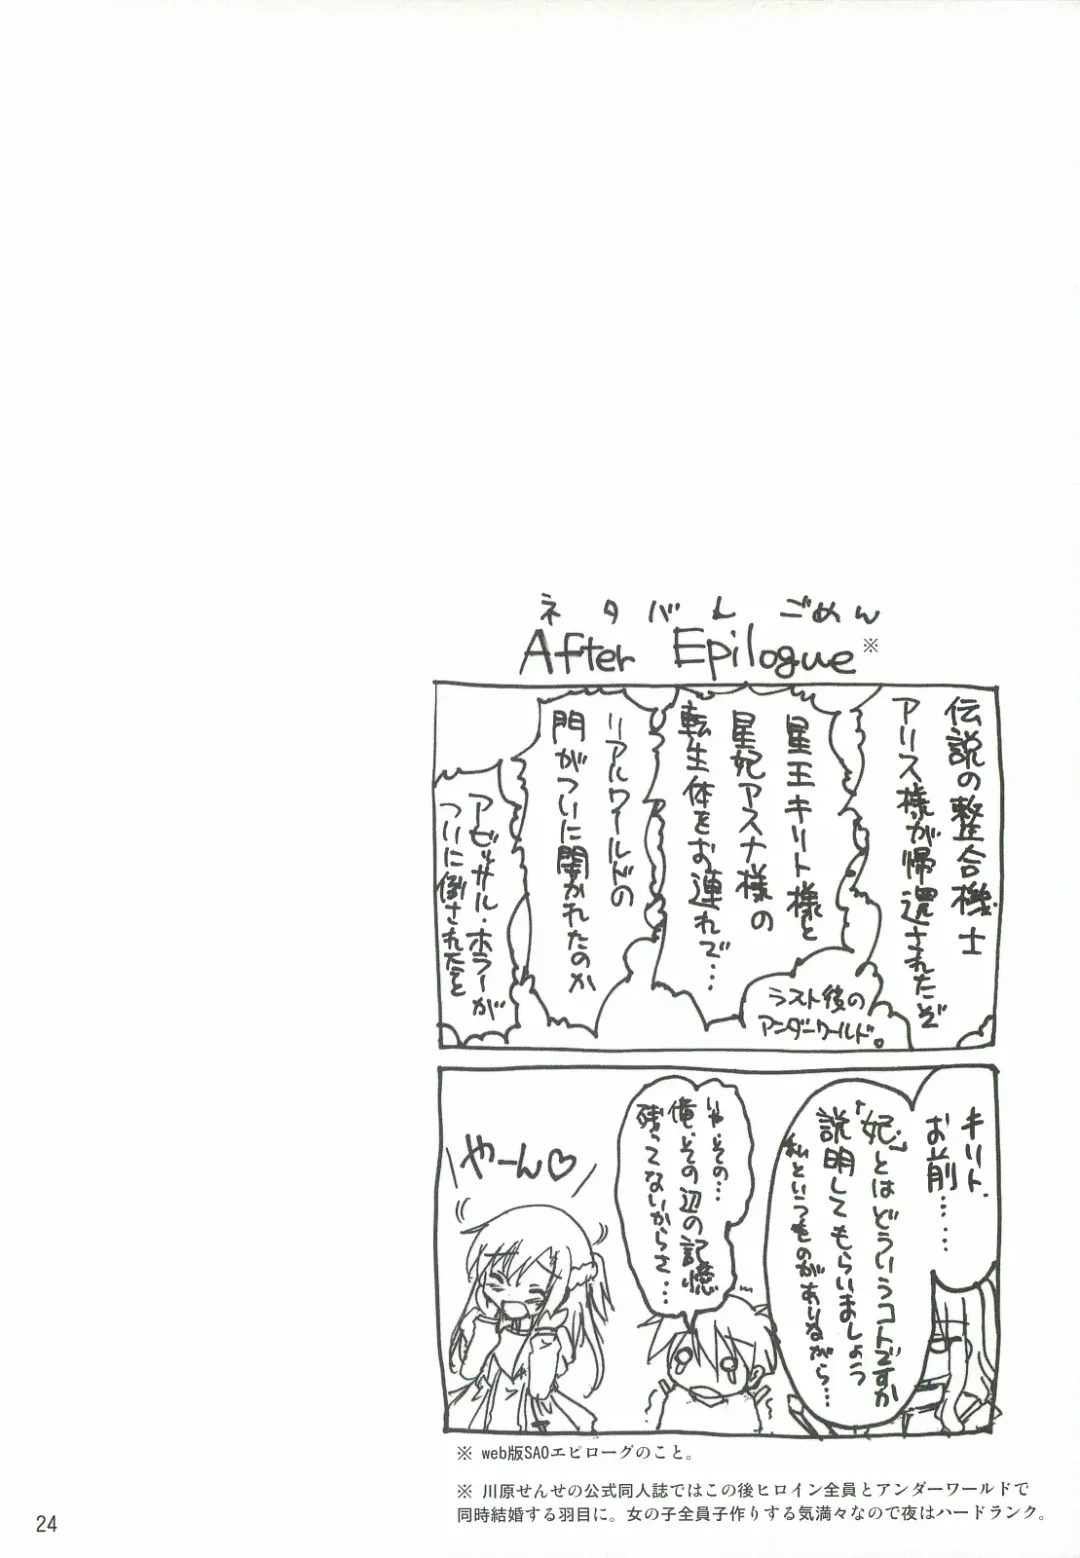 ネタバレごめん
After Epilogue※
伝説の整合機士
アリス様が帰還されたぞ
星王キリト様と
星妃アスナ様の
転生体をお連れで…
リアルワールドの
門がついに開かれたのか
アビッサル・ホラーが
ついに倒されたと
ラスト後の
アンダーワールド。
キリト、
お前……
「妃」とはどういうコトですか
説明してもらいましょう
私というものがありながら…
いや、その…
俺、その辺の記憶
残ってないからさ…
やーん♡
※ web版SAOエピローグのこと。
※ 川原せんせの公式同人誌ではこの後ヒロイン全員とアンダーワールドで
同時結婚する羽目に。女の子全員子作りする気満々なので夜はハードランク。
24